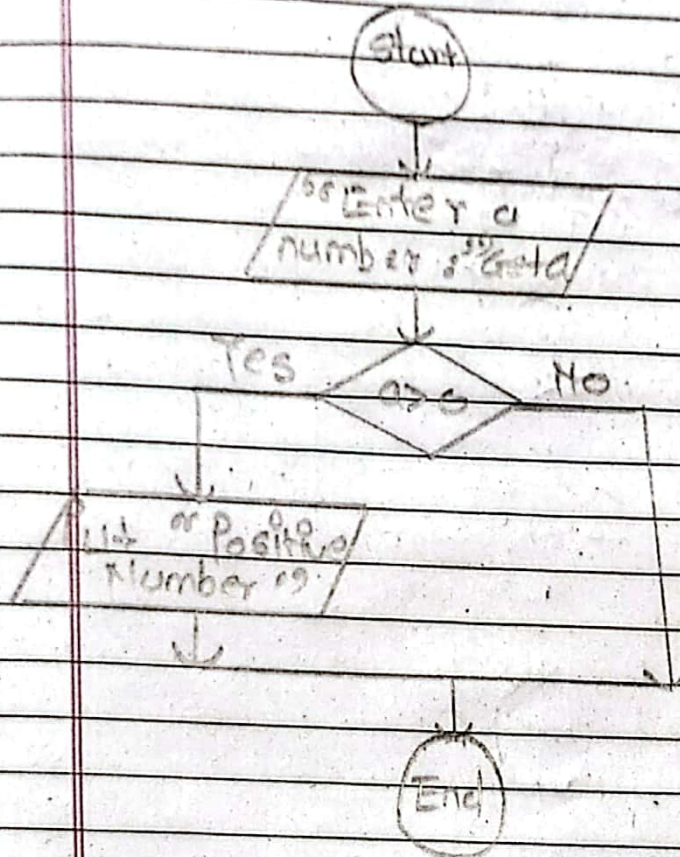 Start
"Enter a
number :" Get a
Yes
a>0
No
Put "Positive
Number"
End